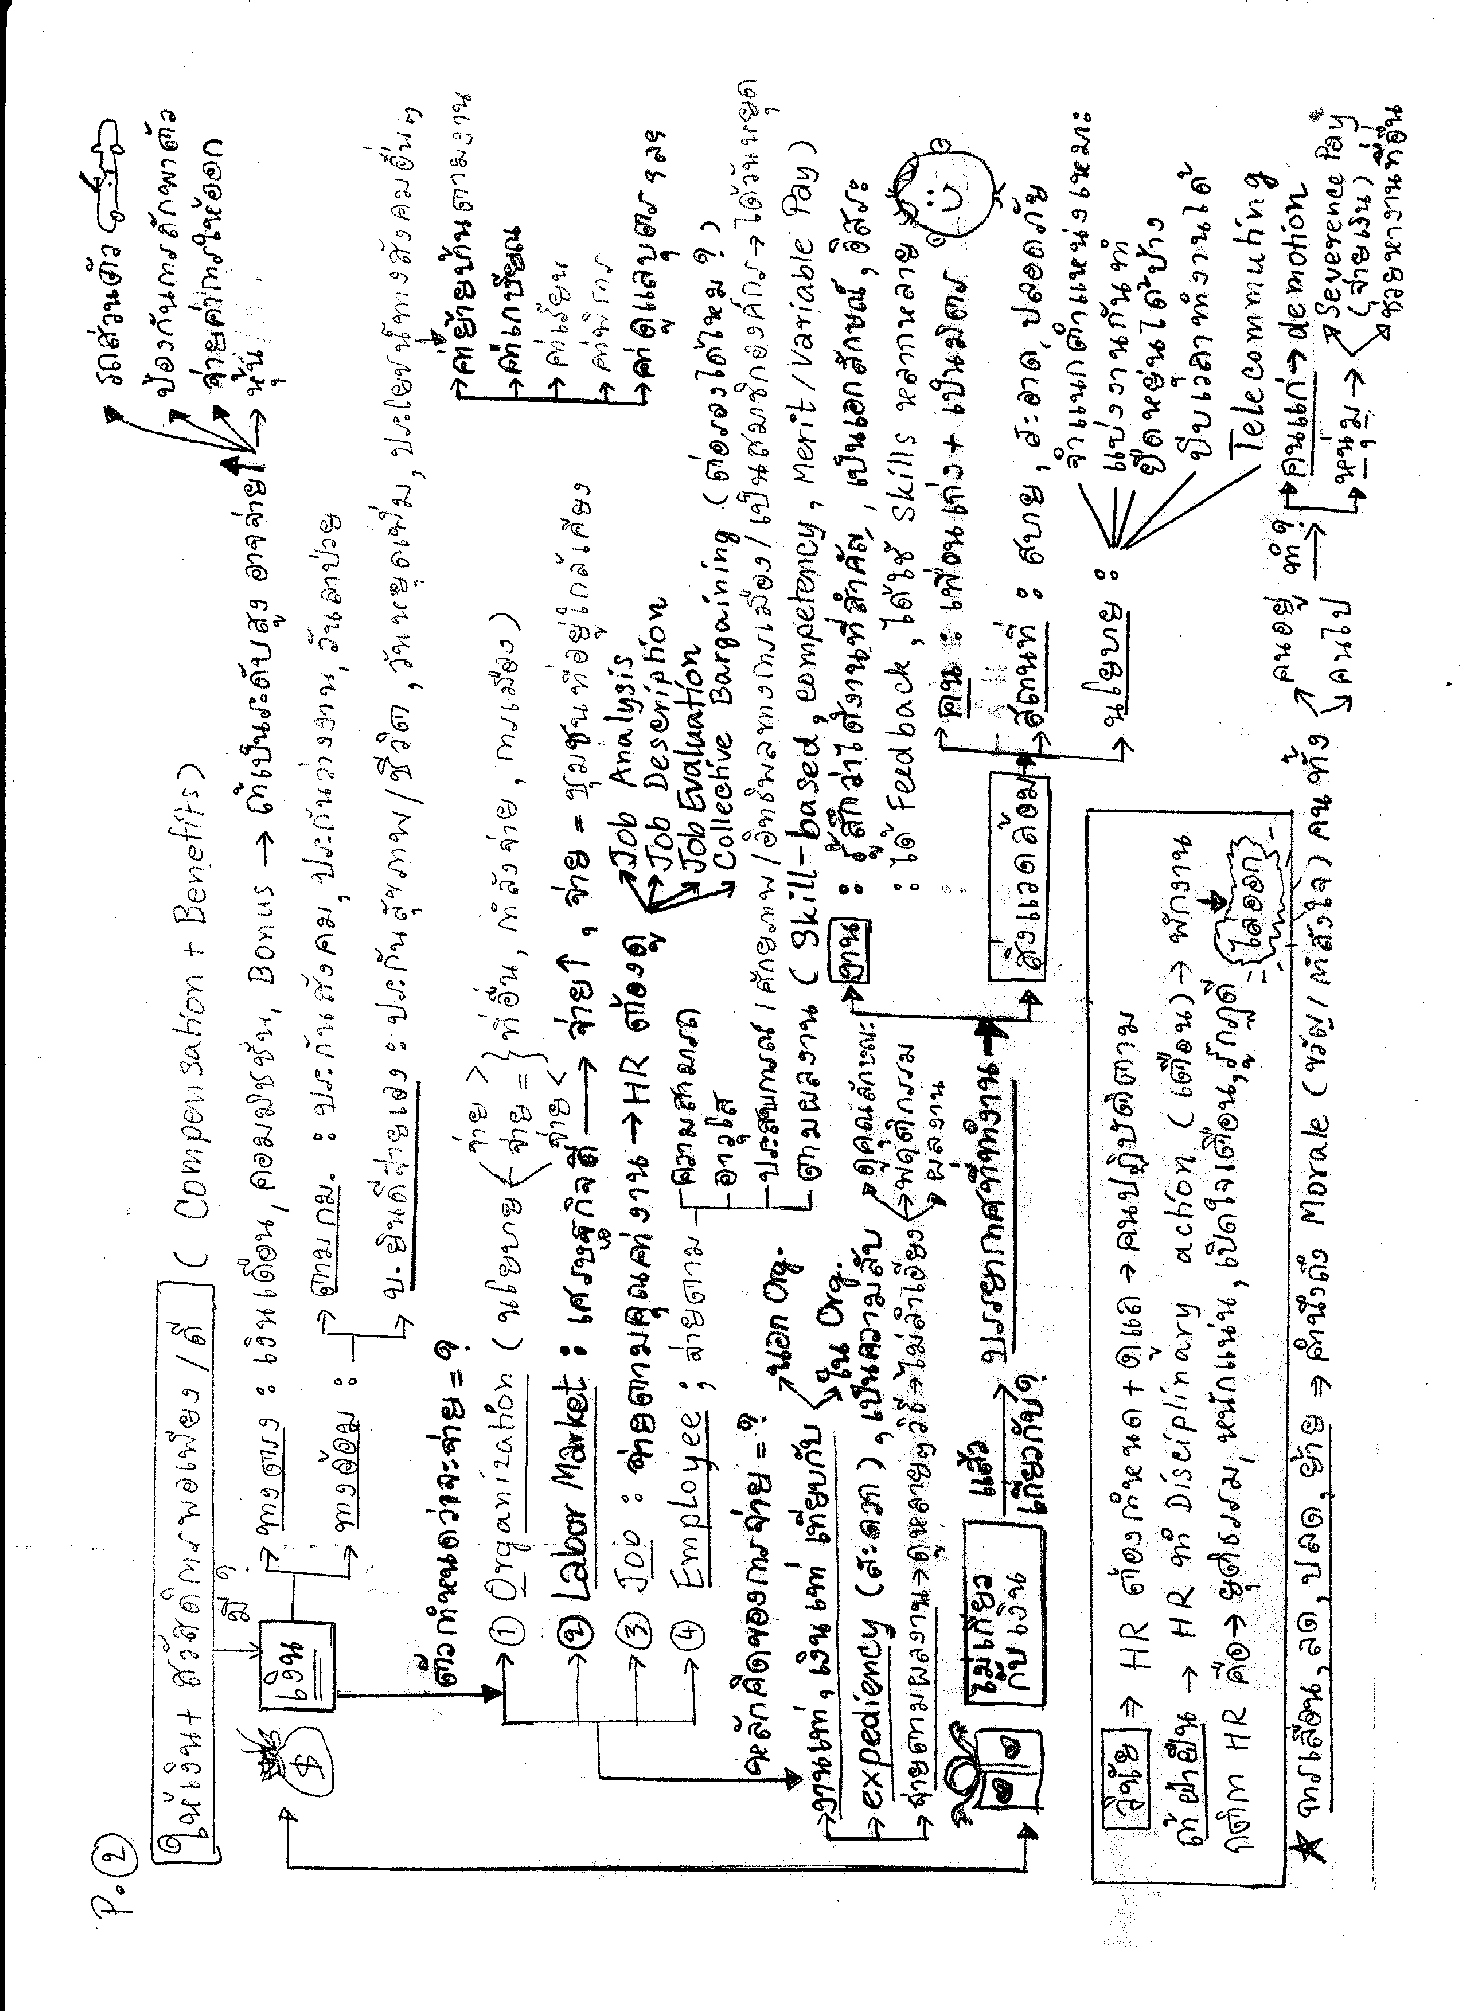 P.②
ให้เงิน + สวัสดิการพอเพียง/ดี (Compensation + Benefits)
มี ?
$
เงิน
ทางตรง : เงินเดือน, คอมมิชชั่น, Bonus → ถ้าเป็นระดับสูง อาจจ่าย
รถส่วนตัว
ป้องกันการลักพาตัว
จ่ายค่าการให้ออก
หุ้น
ทางอ้อม :
ตามกม. : ประกันสังคม, ประกันว่างงาน, วันลาป่วย
บ. ยินดีจ่ายเอง : ประกันสุขภาพ/ชีวิต, วันหยุดเพิ่ม, ประโยชน์ทางสังคมอื่นๆ
ค่าย้ายบ้านตามงาน
ค่าเกษียณ
ค่าเรียน
ค่าพิการ
ค่าดูแลบุตร ฯลฯ
ตัวกำหนดว่าจะจ่าย = ?
① Organization (นโยบาย
จ่าย >
จ่าย =
จ่าย <
ที่อื่น, กำลังจ่าย, การเมือง)
② Labor Market : เศรษฐกิจดี → จ่าย↑, จ่าย = ชุมชนที่อยู่ใกล้เคียง
③ Job : จ่ายตามคุณค่างาน → HR ต้องดู
Job Analysis
Job Description
Job Evaluation
Collective Bargaining (ต่อรองได้ไหม ?)
④ Employee ; จ่ายตาม
ความสามารถ
อาวุโส
ประสบการณ์/ศักยภาพ/อิทธิพลทางการเมือง/เป็นสมาชิกองค์กร → ได้วันหยุด
ตามผลงาน (Skill-based, competency, Merit/Variable Pay)
หลักคิดของการจ่าย = ?
งานเท่า, เงินเท่า เทียบกับ
นอก Org.
ใน Org.
expediency (สะดวก), เป็นความลับ
จ่ายตามผลงาน → ดูหลายๆวิธี → ไม่ลำเอียง
ดูคุณลักษณะ
พฤติกรรม
ผลงาน
ไม่เกี่ยวกับเงิน
แล้วเกี่ยวกับ ?
บรรยากาศที่ทำงาน
งาน : รู้สึกว่าได้งานที่สำคัญ, เป็นเอกลักษณ์, อิสระ
: ได้ Feedback, ได้ใช้ Skills หลากหลาย
สิ่งแวดล้อม
คน : เพื่อนเก่ง + เป็นมิตร
สถานที่ : สบาย, สะอาด, ปลอดภัย
นโยบาย :
จำแนกตำแหน่งเหมาะ
แบ่งงานกันทำ
ยืดหยุ่นได้บ้าง
บีบเวลาทำงานได้
Telecommuting
วินัย ⇒ HR ต้องกำหนด + ดูแล → คนปฏิบัติตาม
ถ้าฝ่าฝืน → HR ทำ Disciplinary action (เตือน) → พักงาน
ไล่ออก
กติกา HR คือ → ยุติธรรม, หนักแน่น, เปิดใจเตือน, รู้กฎดี
★ การเลื่อน, ลด, ปลด, ย้าย ⇒ คำนึงถึง Morale (ขวัญ/กำลังใจ) คนทั้ง
คนอยู่
คนไป
ทำ ?
คนแก่ → demotion
หนุ่ม →
Severence Pay
(จ่ายเงิน)
ช่วยหางานที่อื่น